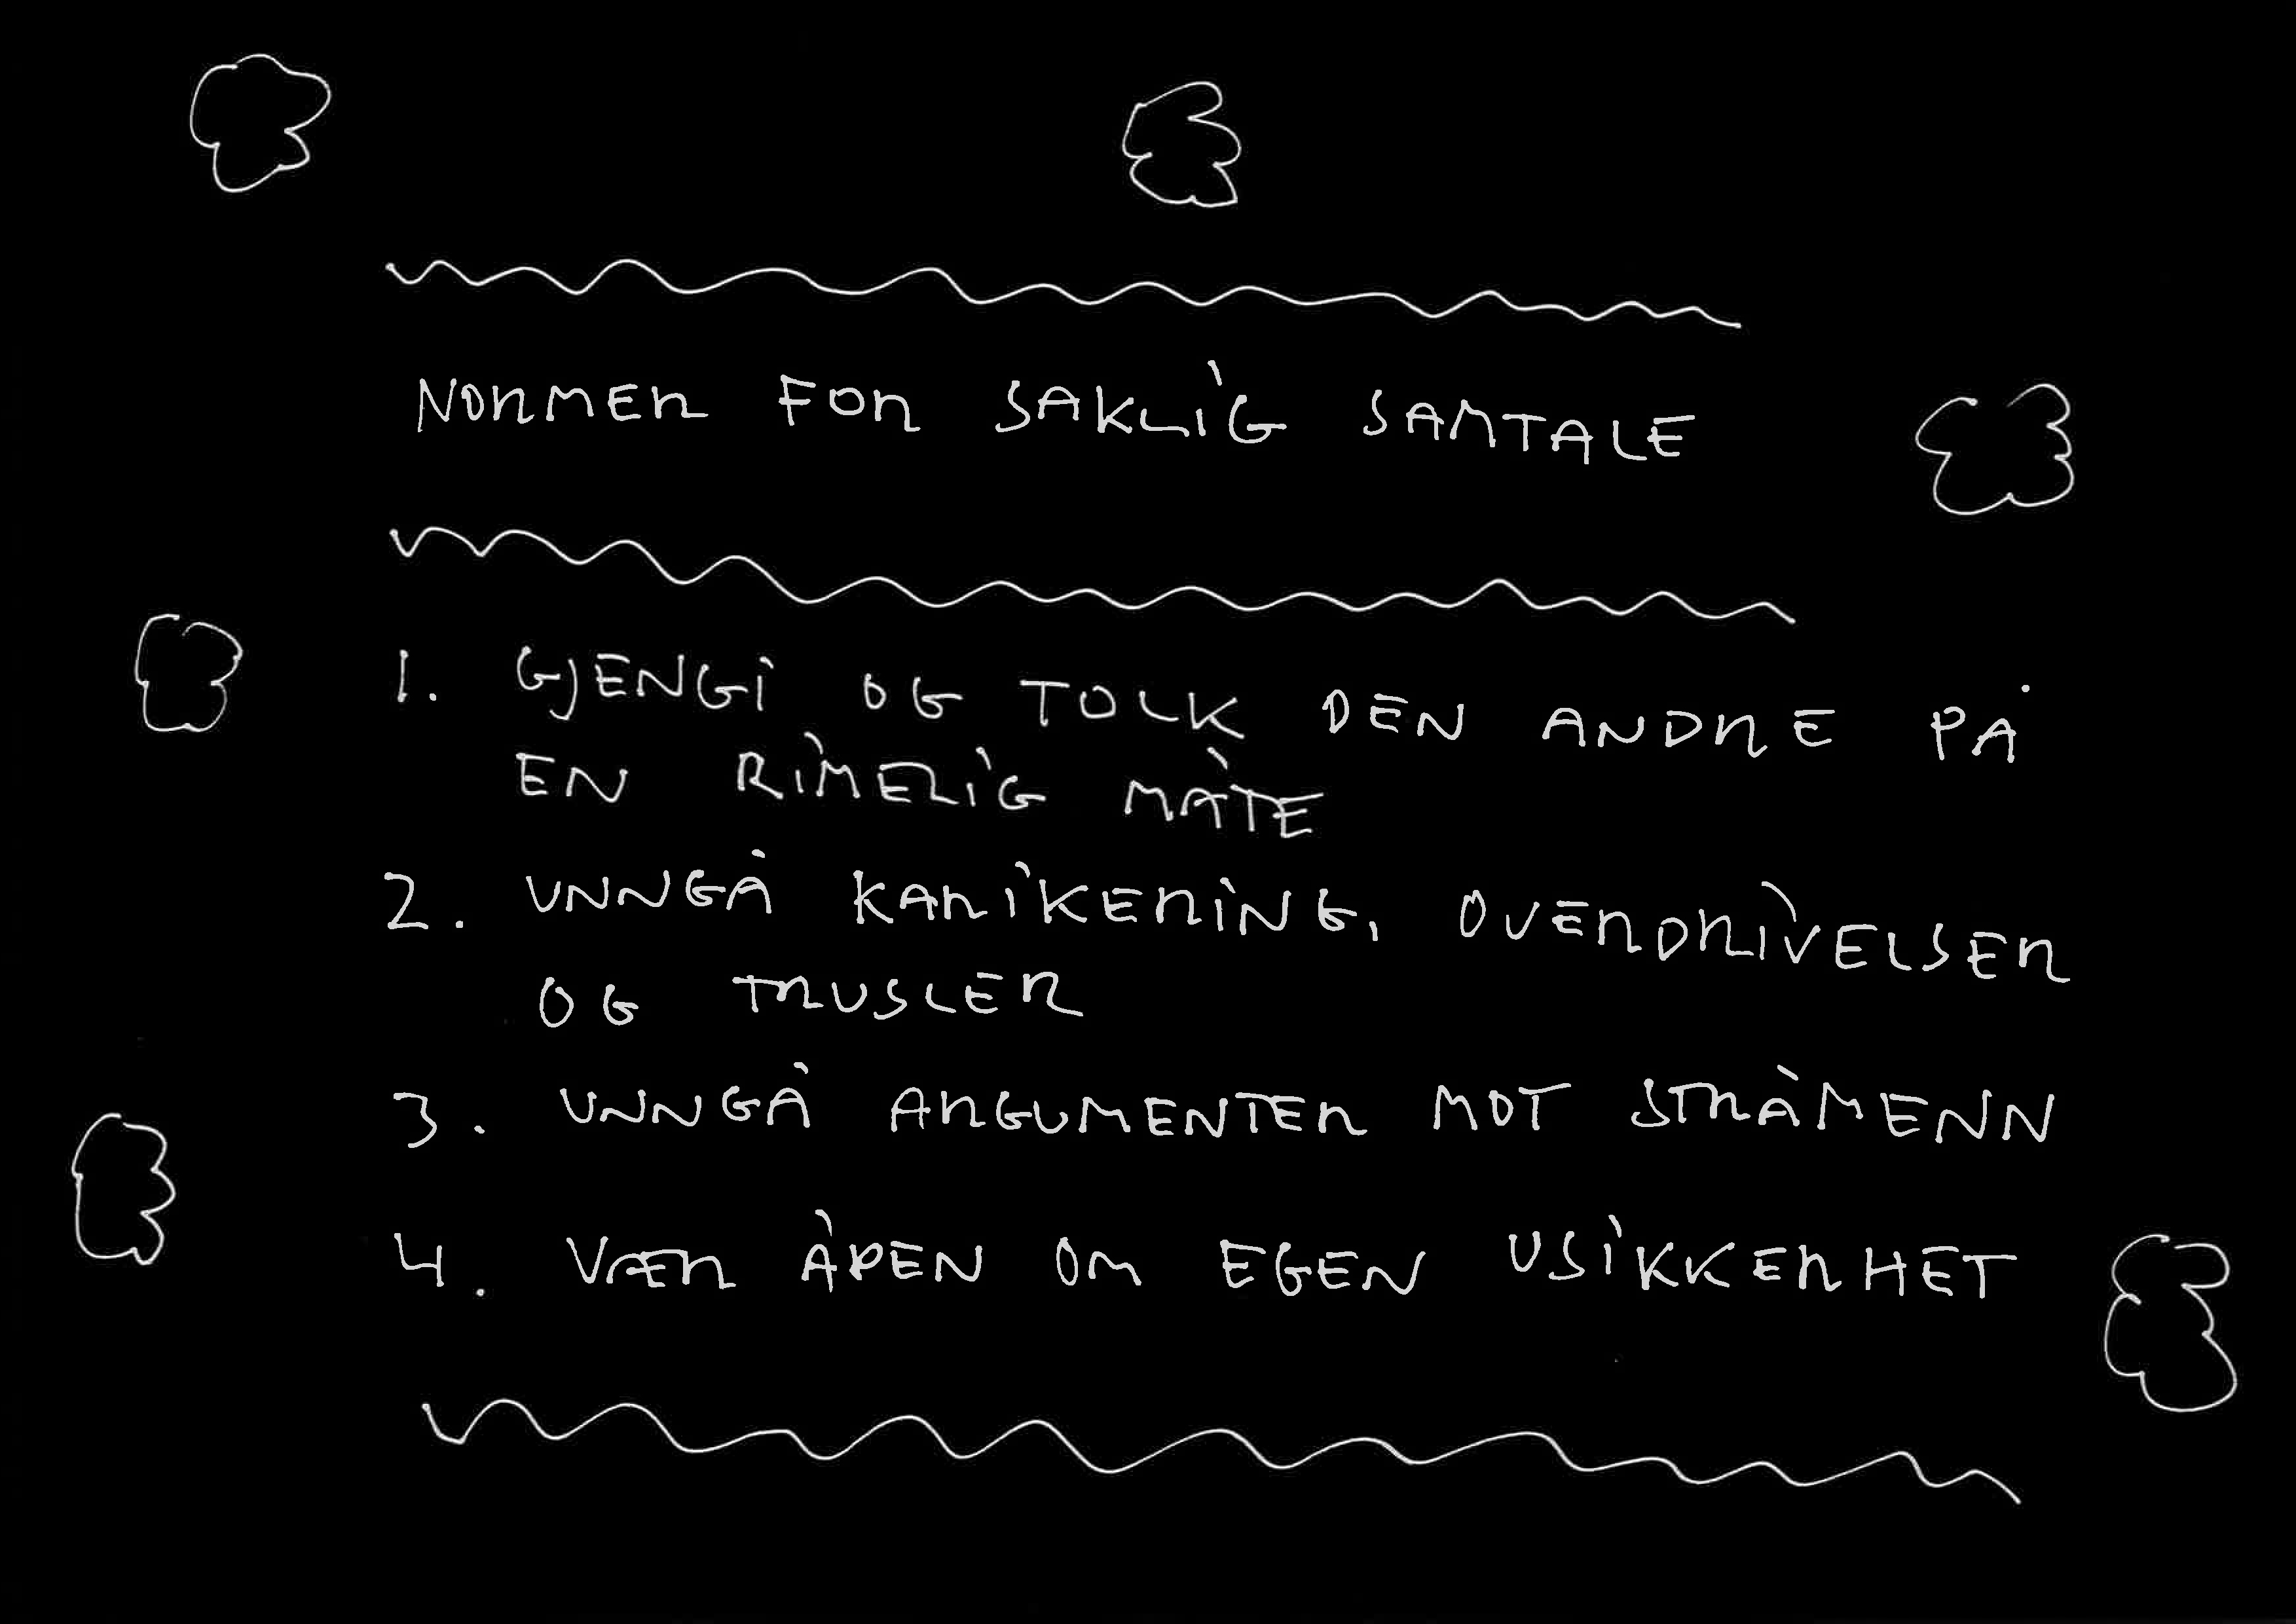 NORMER FOR SAKLIG SAMTALE
1. GJENGI OG TOLK DEN ANDRE PÅ
EN RIMELIG MÅTE
2. UNNGÅ KARIKERING, OVERDRIVELSER
OG TRUSLER
3. UNNGÅ ARGUMENTER MOT STRÅMENN
4. VÆR ÅPEN OM EGEN USIKKERHET